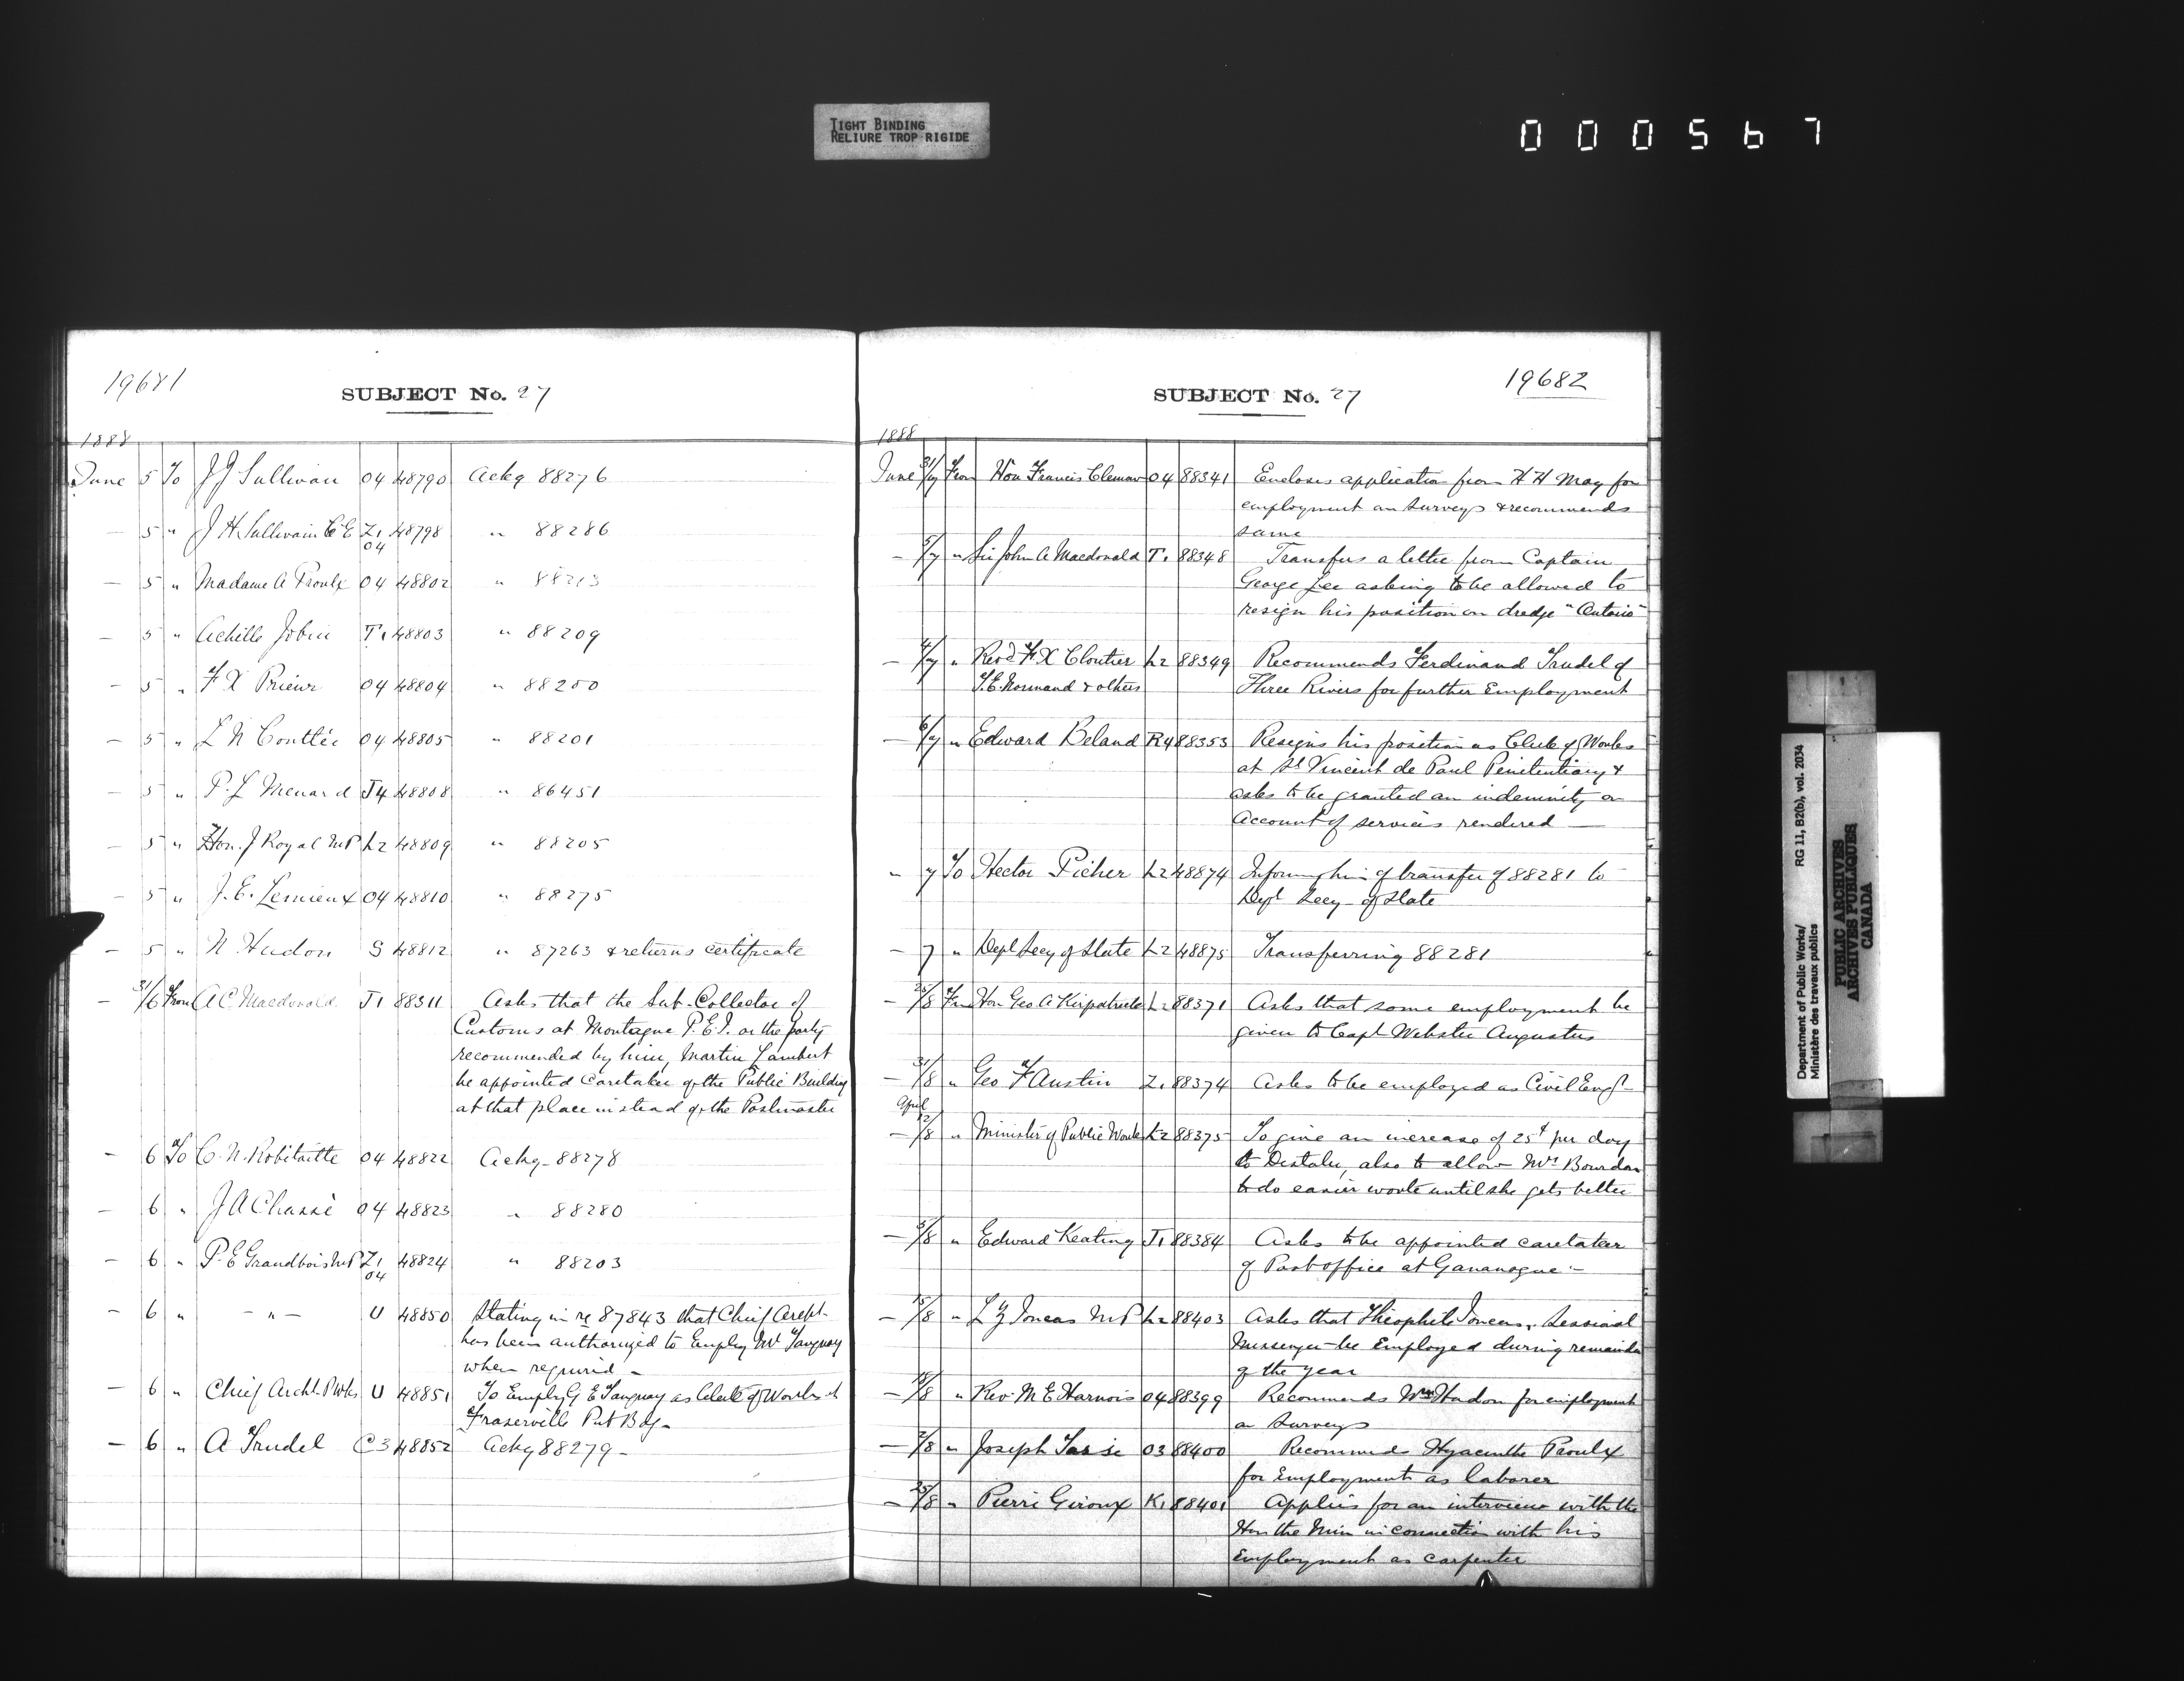 TIGHT BINDING
RELIURE TROP RIGIDE
000567
19681
SUBJECT No. 27
1888
June 5 To J J Sullivan 04 48790 Ackg 88276
— 5 " J H Sullivan C E Z1 04 48798 " 88286
— 5 " Madame A Proulx 04 48802 " 88213
— 5 " Achille Jobin T1 48803 " 88209
— 5 " F X Prieur 04 48804 " 88200
— 5 " L N Couttée 04 48805 " 88201
— 5 " P. L Menard J4 48808 " 86451
— 5 " Hon. J Royal M P L2 48809 " 88205
— 5 " J. E. Lemieux 04 48810 " 88275
— 5 " N Hudon S 48812 " 87263 & returns certificate
— 31/6 From A C Macdonald J1 88311 Asks that the Sub-Collector of
Customs at Montague P.E.I. or the party
recommended by him, Martin Lambert
be appointed Caretaker of the Public Building
at that place instead of the Postmaster
— 6 To C. N. Robitaille 04 48822 Ackg 88278
— 6 " J A Chassé 04 48823 " 88280
— 6 " P. E Grandbois M P Z1 04 48824 " 88203
— 6 " — " — U 48850 Stating in re 87843 that Chief Archt.
has been authorized to Employ Mr Tanguay
when required —
— 6 " Chief Archt. P. Wks U 48851 To Employ G E Tanguay as Clerk of Works at
Fraserville Pub Bdg —
— 6 " A Trudel C3 48852 Ackg 88279 —
SUBJECT No. 27
19682
1888
June 31/7 From Hon Francis Clemow 04 88341 Encloses application from H H May for
employment on Surveys & recommends
same
— 5/7 " Sir John A Macdonald T1 88348 Transfers a letter from Captain
George Lee asking to be allowed to
resign his position on dredge "Ontario"
— 4/7 " Revd F X Cloutier L2 88349 Recommends Ferdinand Trudel of
T. E. Normand & others Three Rivers for further Employment
— 6/7 " Edward Beland R4 88353 Resigns his position as Clerk of Works
at St Vincent de Paul Penitentiary &
asks to be granted an indemnity on
Account of services rendered —
" 7 To Hector Picher L2 48874 Informing him of transfer of 88281 to
Dept Secy of State
— 7 " Dept Secy of State L2 48875 Transferring 88281
— /8 From Hon. Geo A Kirpatrick L2 88371 Asks that some employment be
given to Capt Webster Augustus
— 31/8 " Geo F Austin Z1 88374 Asks to be employed as Civil Engr.
April
— 12/8 " Minister of Public Works L2 88375 To give an increase of 25¢ per day
to also to allow Mrs Bourdon
to do easier work until she gets better
— 5/8 " Edward Keating J1 88384 Asks to be appointed caretaker
of Post office at Gananoque —
— 15/8 " L Z Joncas M P L2 88403 Asks that Théophile Joncas, Sessional
Messenger be Employed during remainder
of the year
— /8 " Rev. M E Harnois 04 88399 Recommends Wm Hudon for employment
on Surveys
— 2/8 " Joseph Tassé 03 88400 Recommends Hyacinthe Proulx
for Employment as laborer
— 25/8 " Pierre Giroux K1 88401 Applies for an interview with the
Hon the Min in connection with his
Employment as carpenter
Department of Public Works/ RG 11, B2(b), vol. 2034
Ministère des travaux publics
PUBLIC ARCHIVES
ARCHIVES PUBLIQUES
CANADA